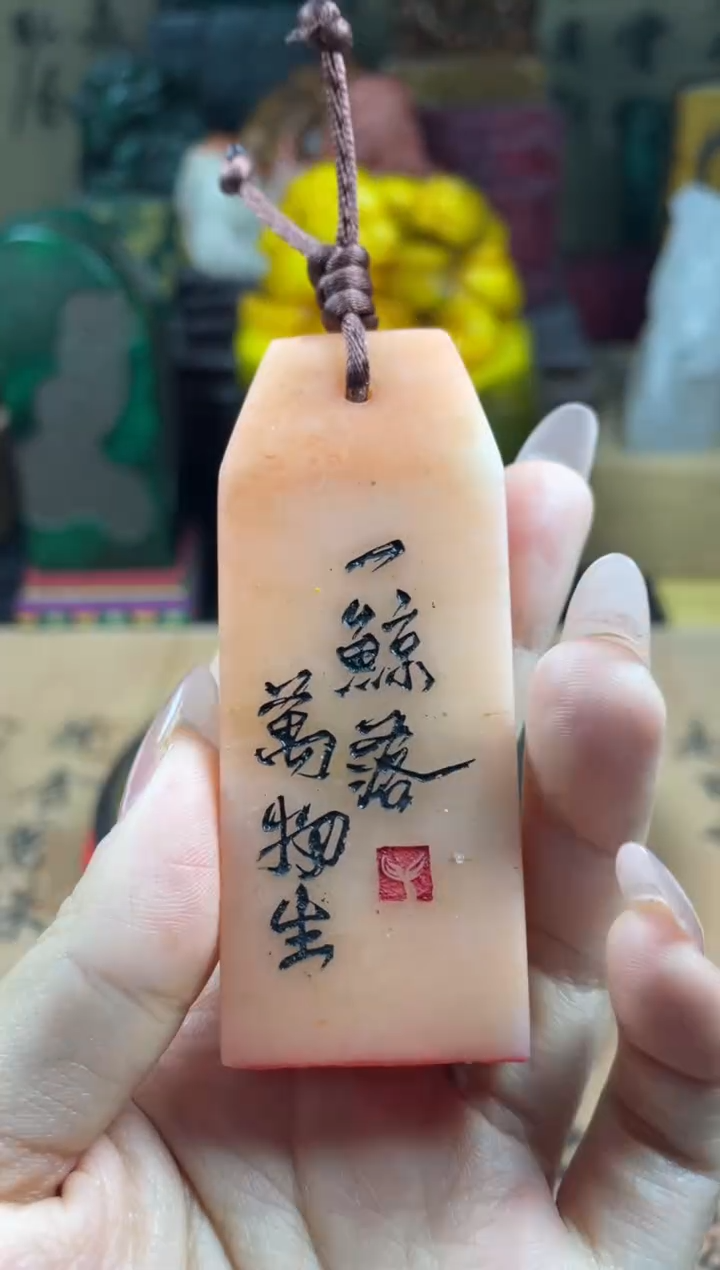 一鲸落
萬物生